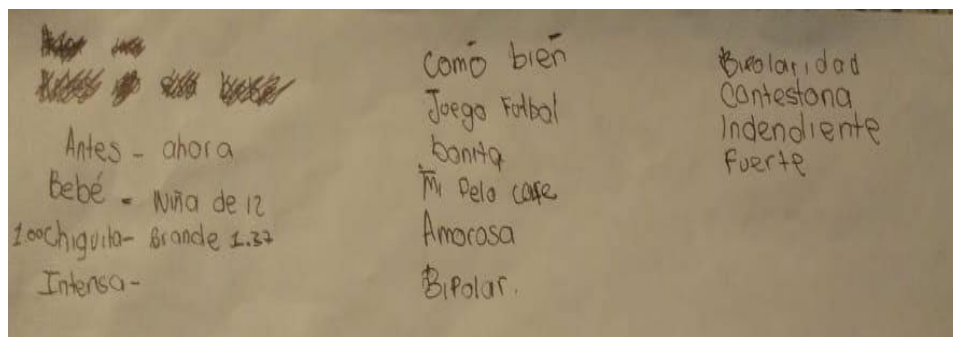 Antes - ahora
Bebé - Niña de 12
1.00 Chiquita - Grande 1.37
Intensa -
Como bien
Juego Futbol
bonita
Mi Pelo cafe
Amorosa
Bipolar.
Bipolaridad
Contestona
Indendiente
Fuerte